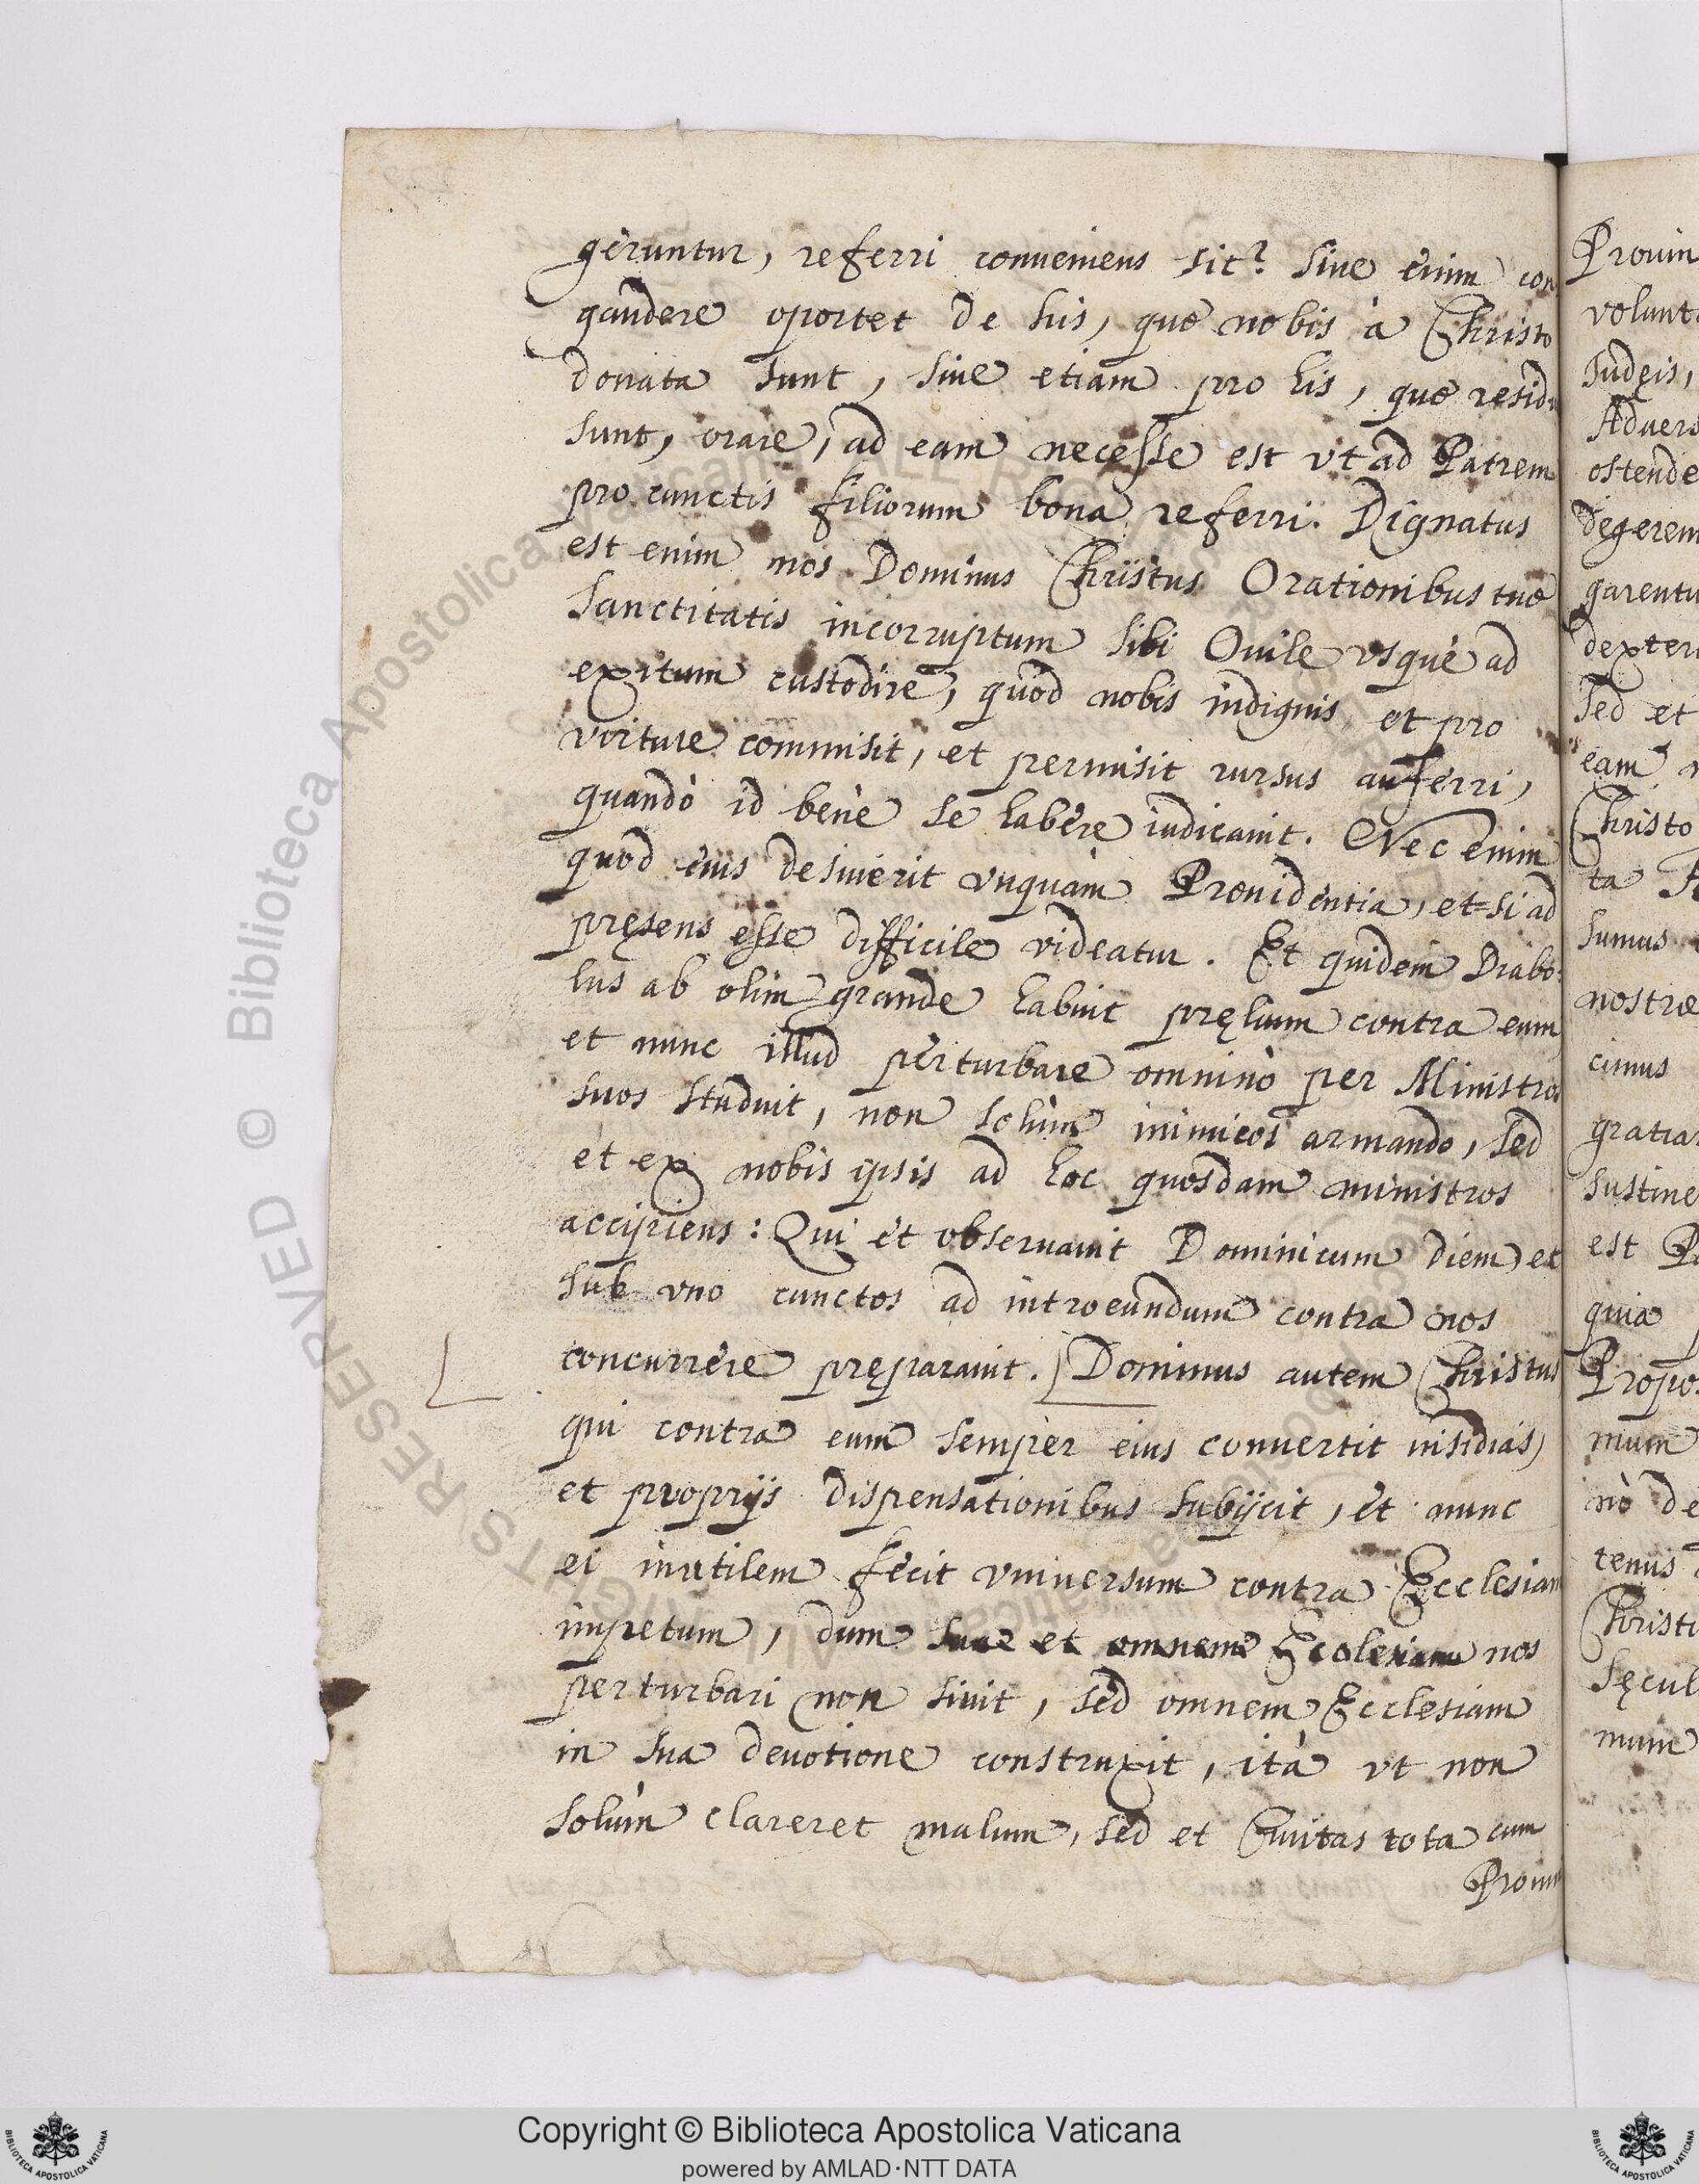 geruntur, referri conueniens sit? Siue enim con
gaudere oportet de his, quæ nobis à Christo
donata sunt, siue etiam pro his, quæ residu
sunt, orare, ad eam necesse est vt ad Patrem
pro cunctis filiorum bona referri. Dignatus
est enim nos Dominus Christus Orationibus tuæ
Sanctitatis incorruptum sibi Ouile vsquè ad
exitum custodire, quod nobis indignis, et pro
virture commisit, et permisit rursus auferri,
quando id benè se habere iudicauit. Nec enim
quod eius desiuerit vnquàm Prouidentia, et-si ad
pręsens esse difficile videatur. Et quidem Diabo-
lus ab olim grande habuit pręlium contra eum
et nunc illud perturbare omninò per Ministros
suos studuit, non solùm inimicos armando, sed
et ex nobis ipsis ad hoc quosdam ministros
accipiens: Qui et obseruauit Dominicum diem et
sub vno cunctos ad introeundum contra nos
concurrere pręparauit. Dominus autem Christus
qui contra eum semper eius conuertit insidias,
et proprijs dispensationibus subijcit, et nunc
ei inutilem fecit vniuersum contra Ecclesiam
impetum, dum suæ et omnem Ecclesiam nos
perturbari non siuit, sed omnem Ecclesiam
in sua deuotione construxit, ità vt non
solùm clareret malum, sed et Ciuitas tota cum
Prouin
Prouin
volunt
Iudęis,
Aduers
ostende
degerem
garentu
dexter
sed et
eam
Christo
ta
sumus
nostræ
cimus
gratia
sustine
est
quia
Propo
mum
nò de
tenus
Christi
sęcul
mum
© Biblioteca Apostolica Vaticana ALL RIGHTS RESERVED
Copyright © Biblioteca Apostolica Vaticana
powered by AMLAD·NTT DATA
BIBLIOTECA APOSTOLICA VATICANA
BIBLIOTECA APOSTOLICA VATICANA